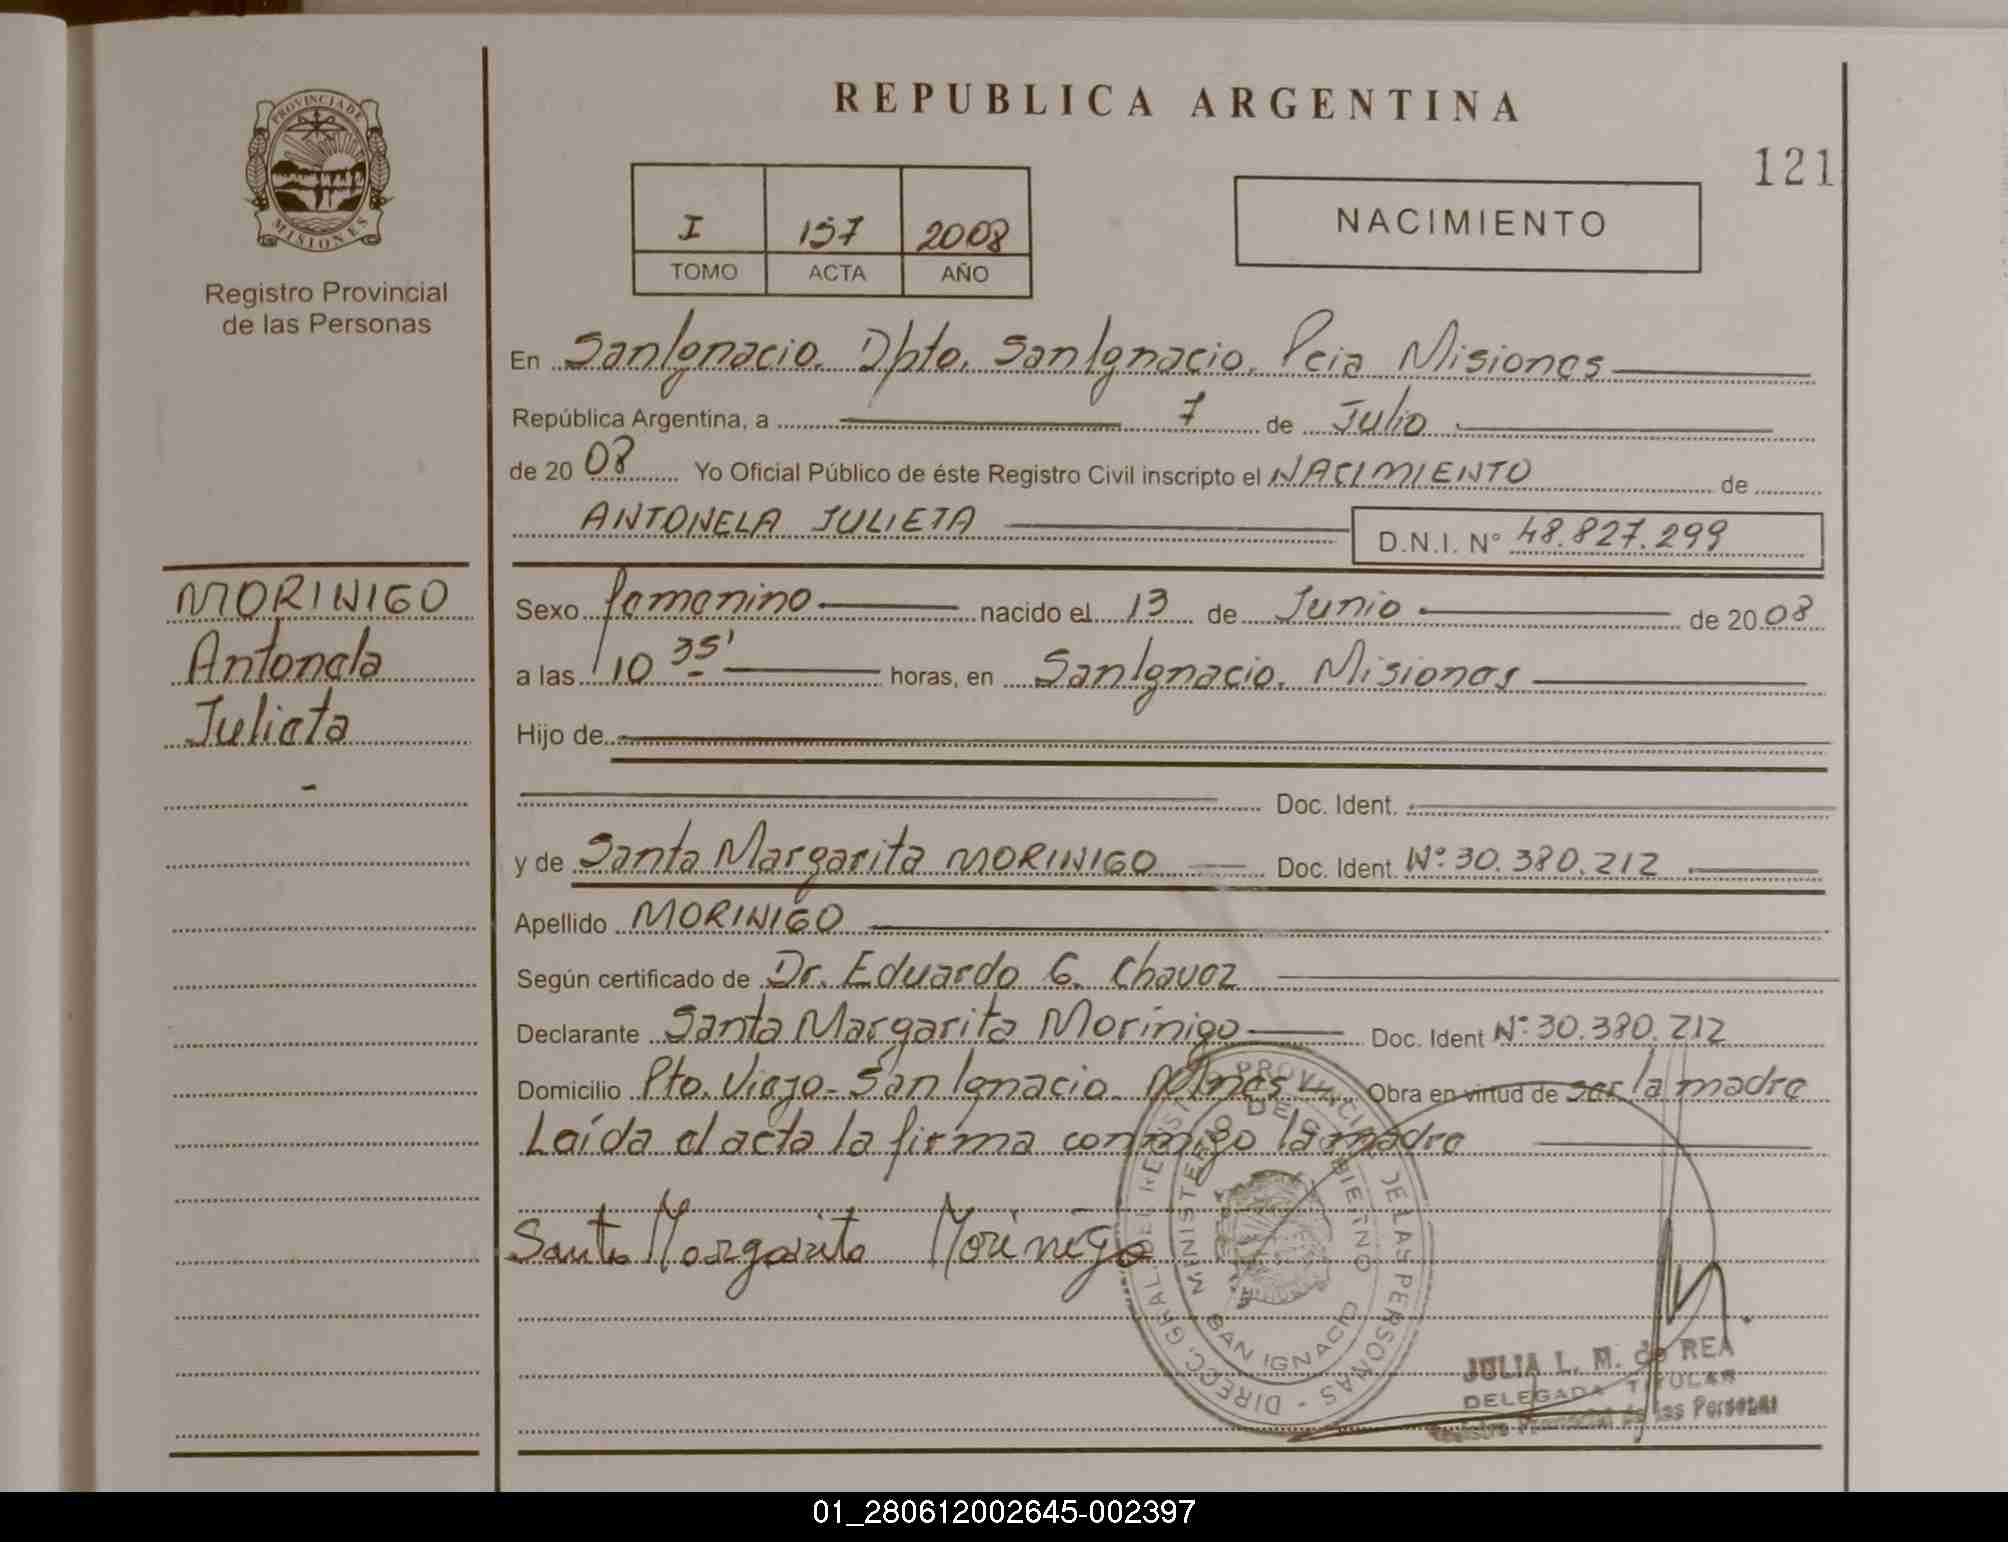 REPUBLICA ARGENTINA
121
PROVINCIA DE
MISIONES
Registro Provincial
de las Personas
I 157 2008
TOMO ACTA AÑO
NACIMIENTO
En San Ignacio. Dpto. San Ignacio. Pcia Misiones
República Argentina, a 7 de Julio
de 20 08 Yo Oficial Público de éste Registro Civil inscripto el NACIMIENTO de
ANTONELA JULIETA D.N.I. N° 48.827.299
MORINIGO
Antonela
Julieta
Sexo femenino nacido el 13 de Junio de 20 08
a las 10 35' horas, en San Ignacio. Misiones
Hijo de
Doc. Ident.
y de Santa Margarita MORINIGO Doc. Ident. N° 30.380.212
Apellido MORINIGO
Según certificado de Dr. Eduardo G. Chavez
Declarante Santa Margarita Morinigo Doc. Ident N° 30.380.212
Domicilio Pto. Viejo - San Ignacio. Mnes Obra en virtud de ser la madre
Leída el acta la firma conmigo la madre
Santa Margarita Morinigo
DIRECC. GRAL. DEL REGISTRO PROVINCIAL DE LAS PERSONAS -
MINISTERIO DE GOBIERNO
SAN IGNACIO
JULIA L. M. de REA
DELEGADA TITULAR
Registro Provincial de las Personas
01_280612002645-002397